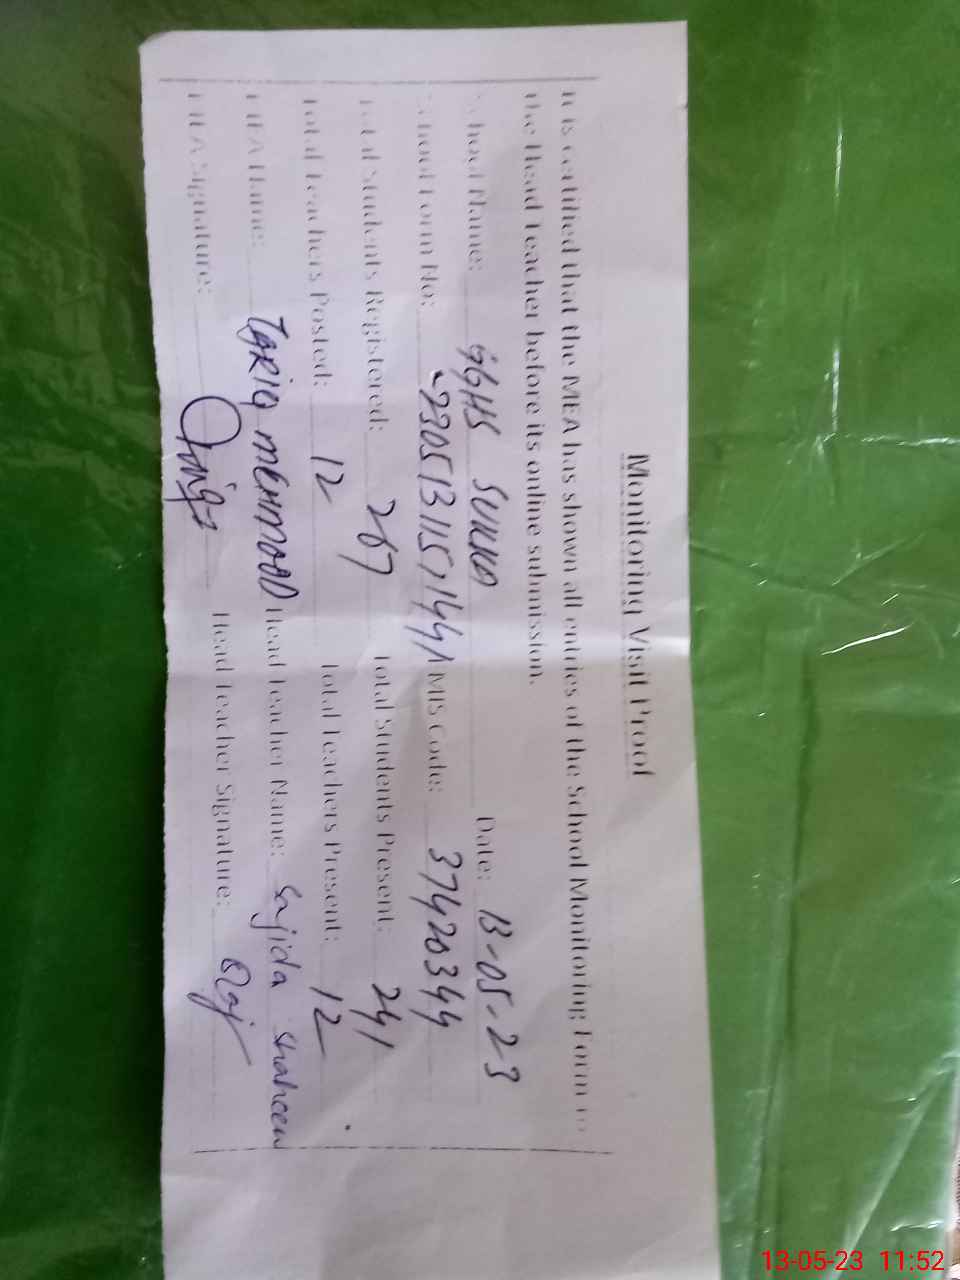 Monitoring Visit Proof
It is certified that the MEA has shown all entries of the School Monitoring Form to
the Head Teacher before its online submission.
School Name: GGHS Date: 13-05-23
School Form No: EMIS Code: 37420344
Total Students Registered: 267 Total Students Present: 241
Total Teachers Posted: 12 Total Teachers Present: 12
MEA Name: TARIQ MEHMOOD Head Teacher Name: Sajida Shaheen
MEA Signature: Head Teacher Signature:
13-05-23 11:52